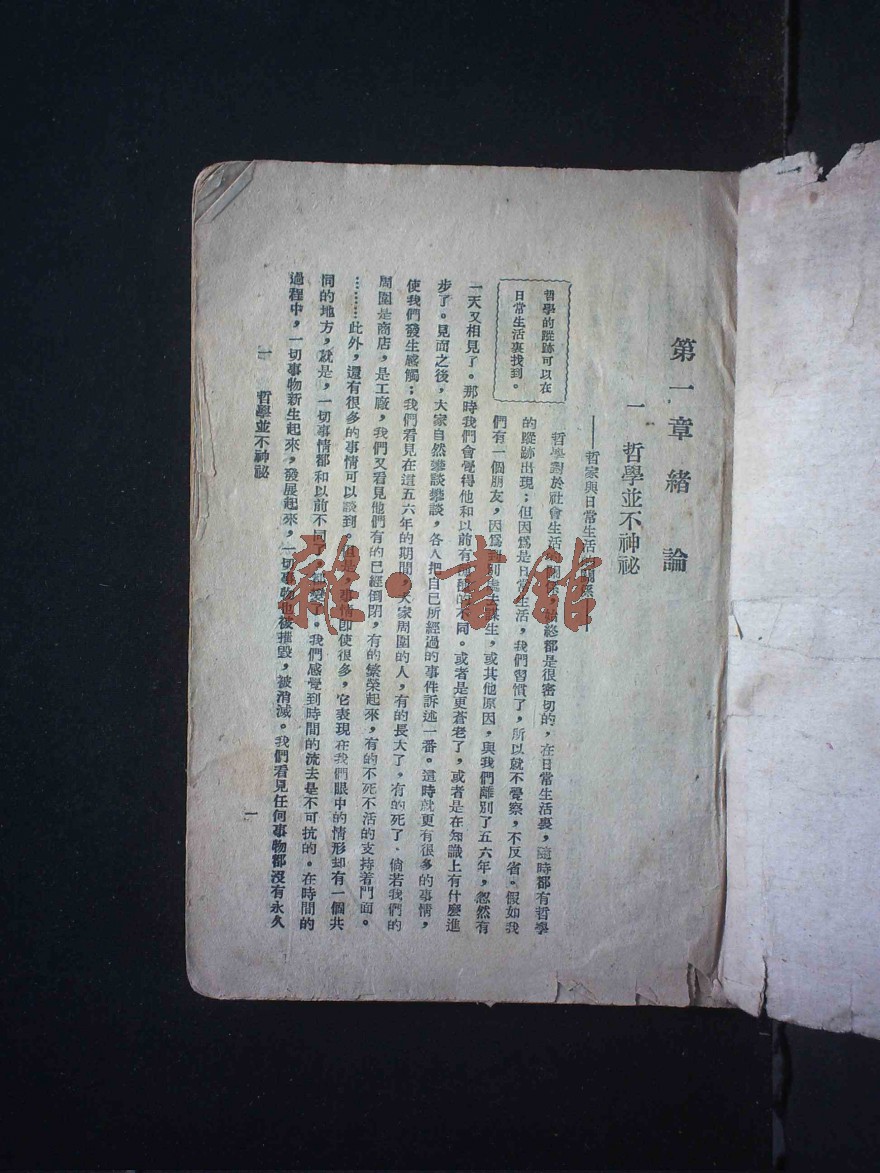 第一章 緒論
一 哲學並不神祕
——哲家與日常生活的關係——
哲學的蹤跡可以在
日常生活裏找到。
哲學對於社會生活的關係，始終都是很密切的，在日常生活裏，隨時都有哲學
的蹤跡出現；但因爲是日常生活，我們習慣了，所以就不覺察，不反省。假如我
們有一個朋友，因爲到別處去謀生，或其他原因，與我們離別了五六年，忽然有
一天又相見了。那時我們會覺得他和以前有些不同。或者是更蒼老了，或者是在知識上有什麼進
步了。見面之後，大家自然攀談攀談，各人把自己所經過的事件訴述一番。這時就更有很多的事情，
使我們發生感觸；我們看見在這五六年的期間，大家周圍的人，有的長大了，有的死了、倘若我們的
周圍是商店，是工廠，我們又看見他們有的已經倒閉，有的繁榮起來，有的不死不活的支持着門面。
………此外，還有很多的事情可以談到，但是，事情卽使很多，它表現在我們眼中的情形却有一個共
同的地方，就是，一切事情都和以前不同了，都變了。我們感覺到時間的流去是不可抗的。在時間的
過程中，一切事物新生起來，發展起來，一切事物也被摧毀，被消滅。我們看見任何事物都沒有永久
一 哲學並不神祕
一
雜·書館